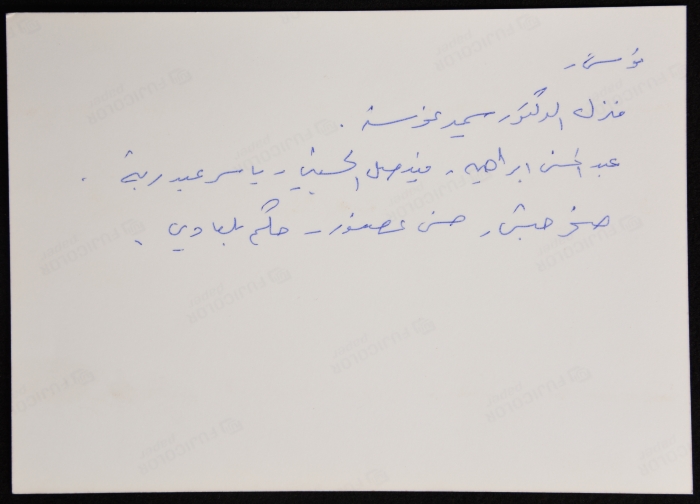 تونس /
منزل الدكتور سمير غوشة .
عبد المحسن ابراهيم / فيصل الحسيني / ياسر عبد ربه .
صخر حبش / حسن عصفور / حكم بلعاوي .